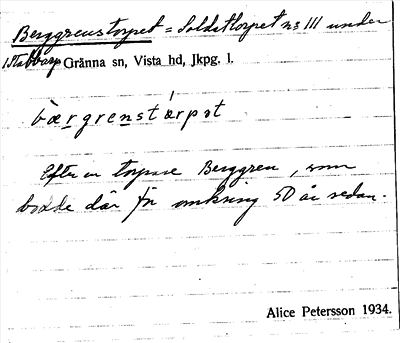 Berggrenstorpet = Soldattorpet nr 111 under
Stabbarp Gränna sn, Vista hd, Jkpg. l.
bærgrenstorpət
Efter en torpare Berggren, som
bodde där för omkring 50 år sedan.
Alice Petersson 1934.